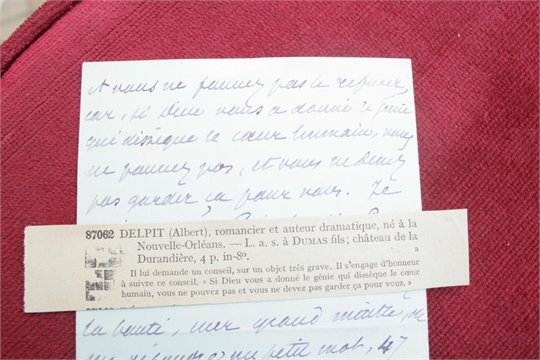 A vous ne pouvez pas le refuser
car, si Dieu vous a donné ce génie
qui dissèque le cœur humain, vous
ne pouvez pas, et vous ne devez
pas garder ça pour vous. Je
87062 DELPIT (Albert), romancier et auteur dramatique, né à la
Nouvelle-Orléans. — L. a. s. à DUMAS fils; château de la
Durandière, 4 p. in-8º. »
Il lui demande un conseil, sur un objet très grave. Il s'engage d'honneur
à suivre ce conseil. « Si Dieu vous a donné le génie qui dissèque le cœur
humain, vous ne pouvez pas et vous ne devez pas garder ça pour vous. »
la bonté, mon grand maître, de
un petit mot, 47